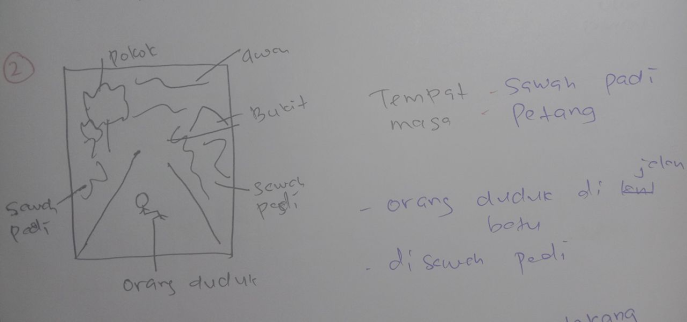 2
Pokok
awan
Bukit
sawah padi
sawah padi
orang duduk
Tempat - sawah padi
masa - Petang
- orang duduk di jalan
batu
- di sawah padi